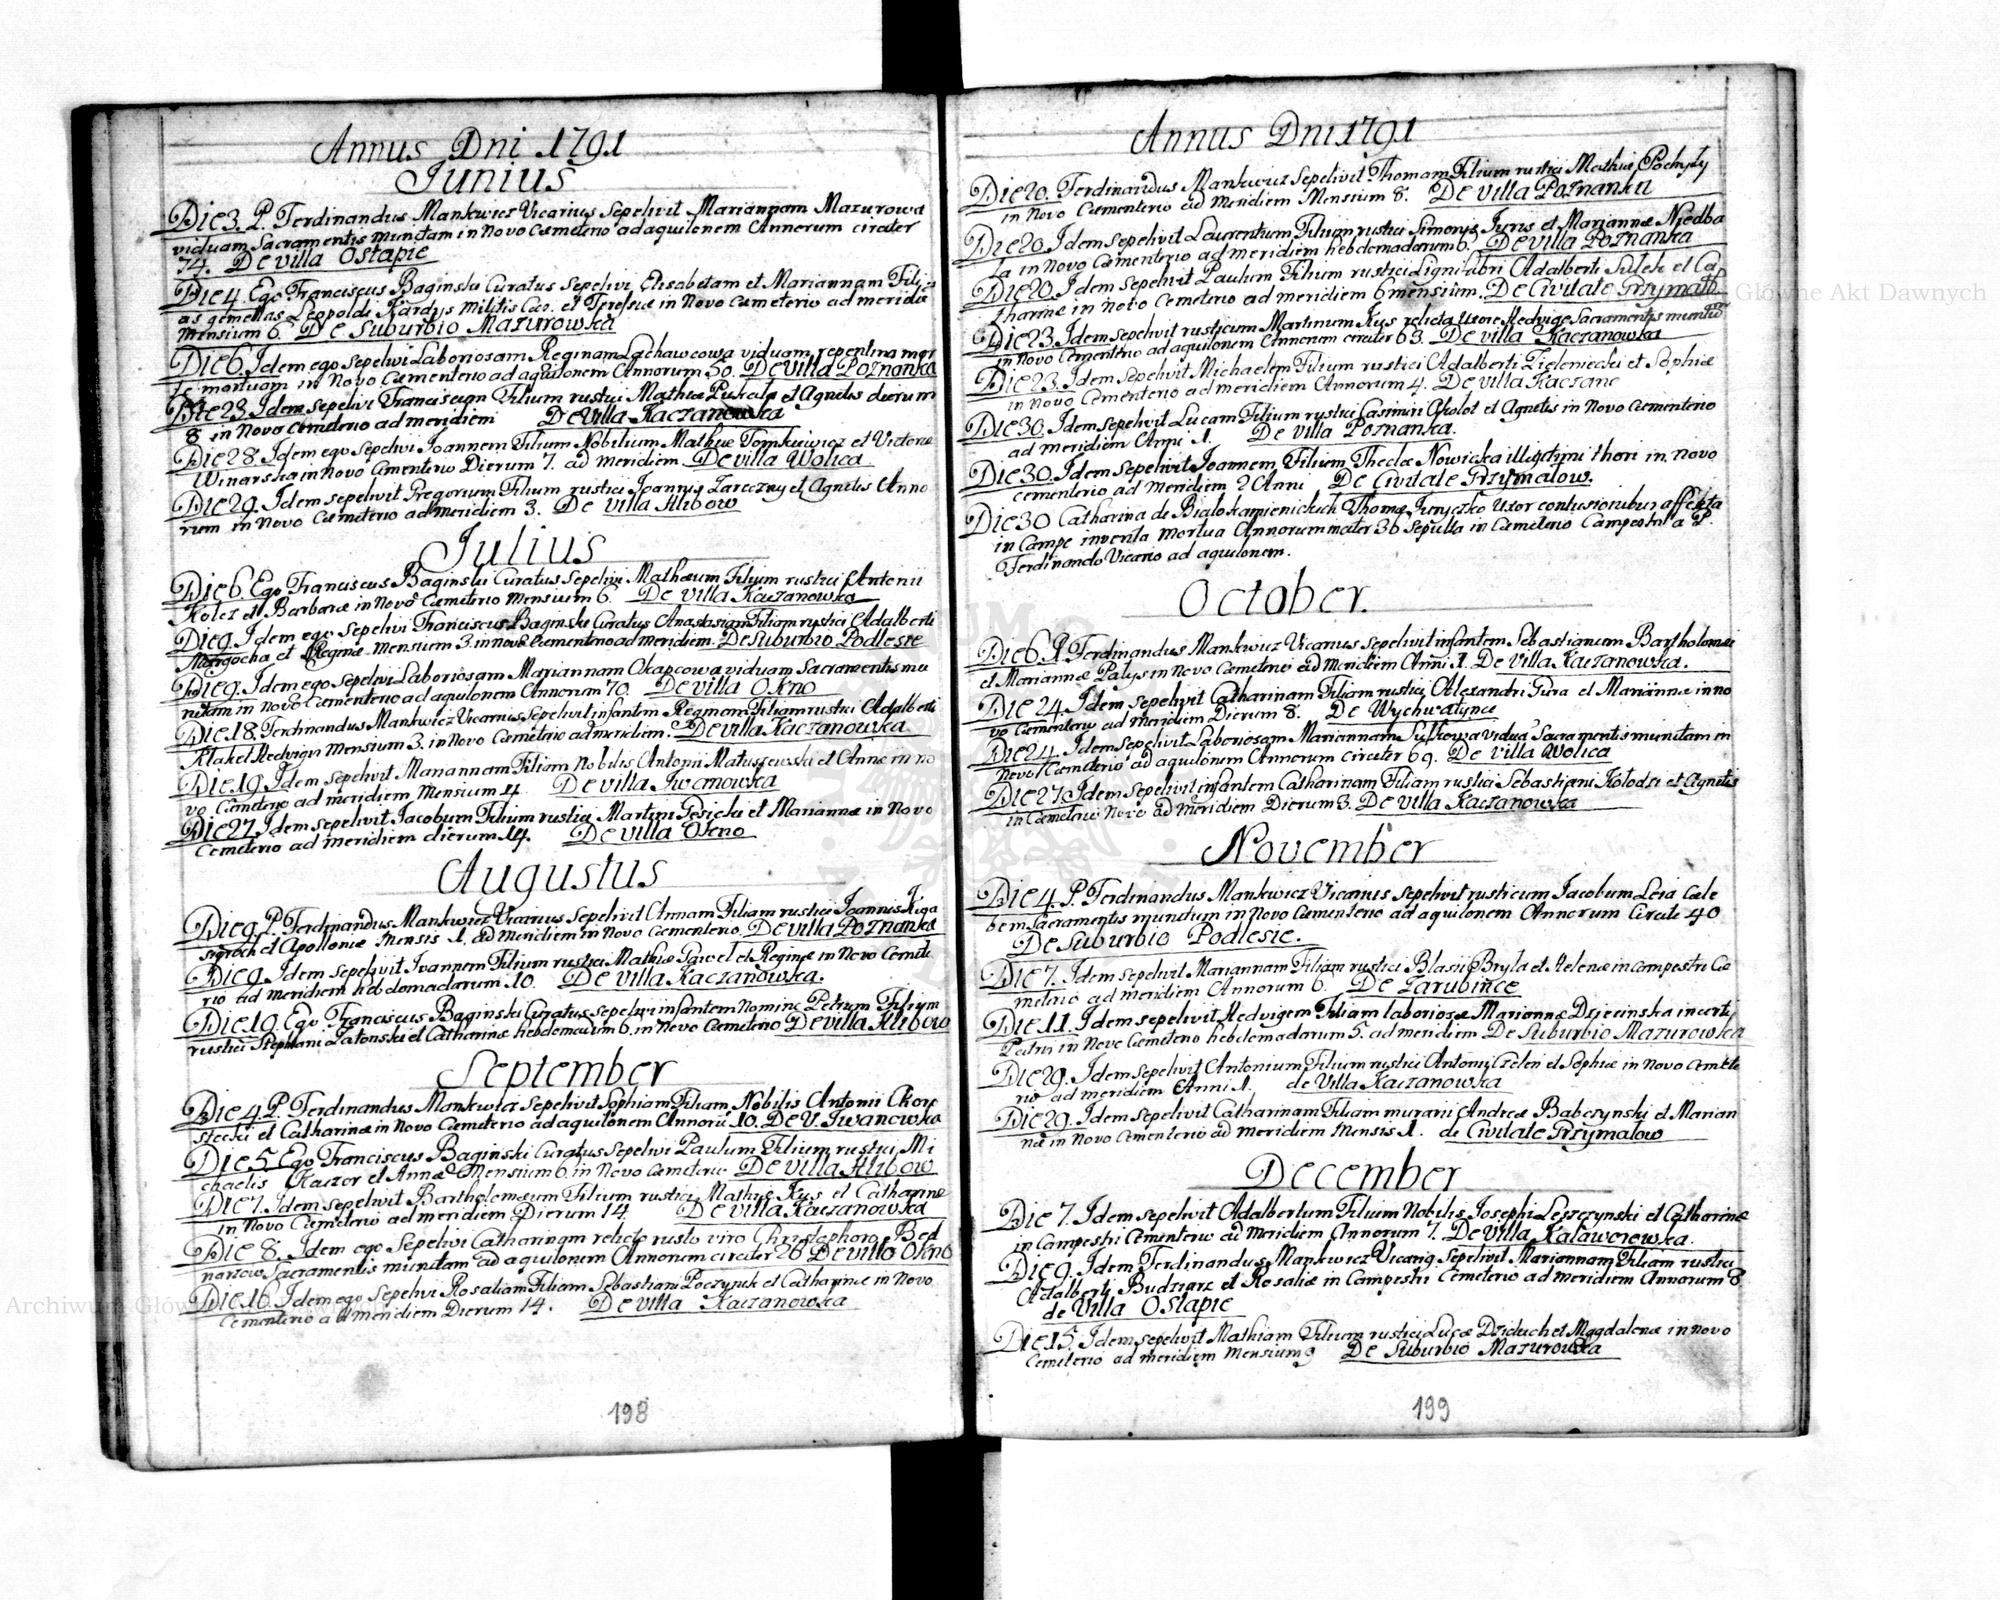 Annus Dni 1791
Junius
Die 3. P. Ferdinandus Mankwicz Vicarius Sepelivit Mariannam Mazurowa
viduam Sacramentis munitam in Novo Cæmeterio ad aquilonem Annorum circiter
74. De villa Ostapie
Die 4. Ego Franciscus Baginski Curatus Sepelivi Elisabetam et Mariannam Fili=
as gemellas Leopoldi Kardys Militis Cæs. et Theresiæ in Novo Cæmeterio ad meridie
Mensium 6. De Suburbio Mazurowka
Die 6. Idem ego Sepelivi Laboriosam Reginam Lachawcowa viduam repentina mor
te mortuam in Novo Cæmenterio ad aquilonem Annorum 50. De villa Poznanka
Die 23. Idem Sepelivi Franciscum Filium rustici Mathiæ Pukala et Agnetis dierum
8 in Novo Cemeterio ad meridiem De villa Kaczanowka
Die 28. Idem ego sepelivi Joannem Filium Nobilium Mathiæ Tomkiewicz et Victoriæ
Winarska in Novo Cæmenterio Dierum 7. ad meridiem De villa Wolica
Die 29. Idem sepelivit Gregorium Filium rustici Joannis Zareczny et Agnetis Anno
rum in Novo Cæmeterio ad meridiem 3. De villa Hlibow
Julius
Die 6. Ego Franciscus Baginski Curatus Sepelivi Mathæum Filium rustici Antonii
Kolcz et Barbaræ in Novo Cæmeterio mensium 6. De villa Kaczanowka
Die 9. Idem ego Sepelivi Franciscus Baginski Curatus Anastasiam Filiam rustici Adalberti
Margocha et Reginæ Mensium 3. in novo Cæmenterio ad meridiem. De Suburbio Podlesie
Die 9. Idem ego Sepelivi Laboriosam Mariannam Okapcowa viduam Sacramentis mu
nitam in Novo Cæmenterio ad aquilonem Annorum 70. De villa Okno
Die 18. Ferdinandus Mankwicz Vicarius Sepelivit infantem Reginam Filiam rustici Adalberti
Klakel Hedvigis Mensium 3. in Novo Cæmeterio ad meridiem. De villa Kaczanowka
Die 19. Idem sepelivit Mariannam Filiam Nobilis Antonii Matuszewski et Annæ in no
vo Cæmeterio ad meridiem Mensium 4 De villa Iwanowka
Die 27. Idem sepelivit Jacobum Filium rustici Martini Gesicki et Mariannæ in Novo
Cemeterio ad meridiem dierum 14. De villa Okno
Augustus
Die 9. P. Ferdinandus Mankwicz Vicarius Sepelivit Annam Filiam rustici Joannis
et Apolloniæ Mensis 1. ad meridiem in Novo Cæmenterio. De villa Poznanka
Die 9. Idem sepelivit Ivannem Filium rustici Mathiæ Pawel et Reginæ in Novo Cemete
rio ad meridiem hebdomadarum 10. De villa Kaczanowka.
Die 19. Ego Franciscus Baginski Curatus sepelivi infantem nomine Petrum Filium
rustici Stephani Zatonski et Catharinæ hebdomadum 6. in Novo Cæmeterio De villa Hlibow
September
Die 4. P. Ferdinandus Mankwicz Sepelivit Sophiam Filiam Nobilis Antonii Chorz
stecki et Catharinæ in Novo Cæmeterio ad aquilonem Annorū 10. De V. Iwanowka
Die 5 Ego Franciscus Baginski Curatus Sepelivi Paulum Filium rustici Mi
chaelis Kaczor et Annæ Mensium 6. in Novo Cæmeterio De villa Hlibow
Die 7. Idem sepelivit Bartholomæum Filium rustici Mathiæ Kys et Catharinæ
in Novo Cæmeterio ad meridiem Dierum 14 De villa Kaczanowka
Die 8. Idem ego Sepelivi Catharinam relicto rusto viro Christophoro Bed
narzow Sacramentis munitam ad aquilonem Annorum circiter 26 De villa Okno
Die 16. Idem ego Sepelivi Rosaliam Filiam Sebastiani Poczynek et Catharinæ in Novo
Cementerio ad meridiem Dierum 14. De villa Kaczanowka
198
Annus Dni 1791
Die 20. Ferdinandus Mankwicz Sepelivit Thomam Filium rustici Mathiæ Pochyly
in Novo Cæmenterio ad meridiem Mensium 8. De villa Poznanka
Die 20. Idem sepelivit Laurentium Filium rustici Simonis Juris et Mariannæ Niedba
la in Novo Cæmenterio ad meridiem hebdomadarum 6. De villa Poznanka
Die 20. Idem sepelivit Paulum Filium rustici Lignifabri Adalberti Sulek et Ca
tharinæ in Novo Cemeterio ad meridiem 6 mensium. De Civitate Grzymalo
Die 23. Idem sepelivit rusticum Martinum Kys relicta uxore Hedvige Sacramentis munitū
in Novo Cæmenterio ad aquilonem Annorum circiter 63. De villa Kaczanowka
Die 23. Idem sepelivit Michaelem Filium rustici Adalberti Zieleniecki et Sophiæ
in Novo Cæmenterio ad meridiem Annorum 4. De villa Kaczano
Die 30. Idem sepelivit Lucam Filium rustici Casimiri Cholot et Agnetis in Novo Cæmenterio
ad meridiem Anni 1. De villa Poznanka.
Die 30. Idem sepelivit Joannem Filium Theclæ Nowicka illigitimi thori in Novo
cementerio ad meridiem 2 Anni De Civitate Grzymalow.
Die 30 Catharina de Bialokamienickich Thomæ uxor contusionibus affecta
in Campo inventa mortua Annorum mater 36 sepulta in Cæmeterio Campestri a P.
Ferdinando Vicario ad aquilonem.
October.
Die 6. P. Ferdinandus Mankwicz Vicarius sepelivit infantem Sebastianum Bartholomæi
et Mariannæ Palys in Novo Cæmeterio ad meridiem Anni 1. De Villa Kaczanowka.
Die 24. Idem sepelivit Catharinam Filiam rustici Alexandri Gura et Mariannæ in no
vo Cæmenterio ad meridiem Dierum 8. De Wychwatynce
Die 24. Idem sepelivit Laboriosam Mariannam Sulkowa vidua Sacramentis munitam in
Novo Cæmeterio ad aquilonem Annorum circiter 69. De villa Wolica
Die 27. Idem sepelivit infantem Catharinam Filiam rustici Sebastiani Kolodzi et Agnetis
in Cæmeterio Novo ad Meridiem Dierum 3. De villa Kaczanowka
November
Die 4. P. Ferdinandus Mankwicz Vicarius sepelivit rusticum Jacobum Leia Cæle
bem Sacramentis munitum in Novo Cæmenterio ad aquilonem Annorum Circite 40
De Suburbio Podlesie.
Die 7. Idem sepelivit Mariannam Filiam rustici Blasii Bryla et Helenæ in campestri Cæ
meterio ad meridiem Annorum 6. De Zarubince
Die 11. Idem sepelivit Hedvigem Filiam laboriosæ Mariannæ Dziecinska incerti
Patris in Novo Cæmeterio hebdomadarum 5. ad meridiem De Suburbio Mazurowka
Die 29. Idem sepelivit Antonium Filium rustici Antonii Czelen et Sophiæ in Novo Cemete
rio ad meridiem Anni 1. de Villa Kaczanowka
Die 29. Idem sepelivit Catharinam Filiam murarii Andreæ Babczynski et Marian
næ in Novo Cæmenterio ad meridiem mensis 1. de Civitate Grzymalow
December
Die 7. Idem sepelivit Adalbertum Filium Nobilis Josephi Leszczynski et Catharinæ
in Campestri Cæmenterio ad Meridiem Annorum 7. De Villa Kalaworowka.
Die 9. Idem Ferdinandus Mankwicz Vicariq Sepelivit Mariannam Filiam rustici
Adalberti Budziarz et Rosaliæ in Campestri Cemeterio ad meridiem Annorum 8
de Villa Ostapie
Die 15. Idem sepelivit Mathiam Filium rustici Lucæ Dziduch et Magdalenæ in novo
Cæmeterio ad meridiem mensium 9 De Suburbio Mazurowka
199
Archiwum Główne Akt Dawnych